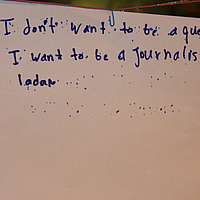 I don't want to be a que
I want to be a Journalis
ladan